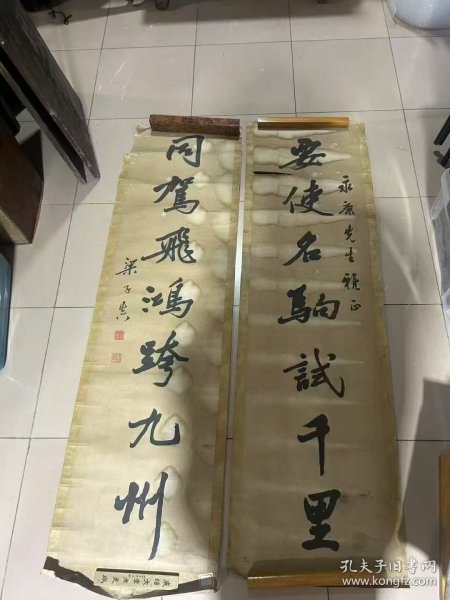 要使名駒試千里
永康先生雅正
同駕飛鴻跨九州
孔夫子旧书网
www.kongfz.com